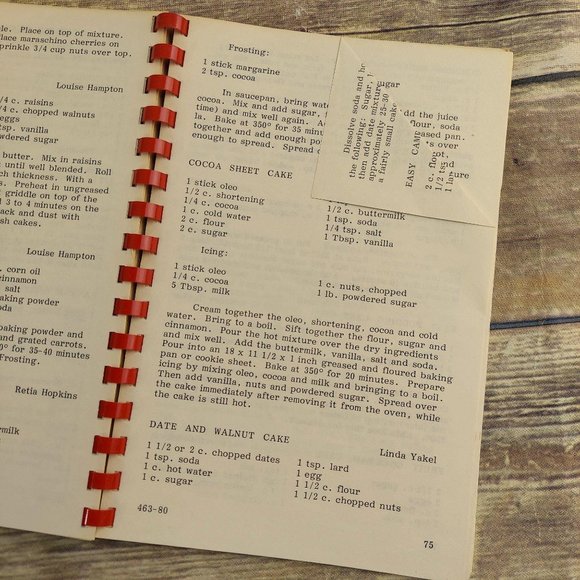 ole. Place on top of mixture.
lace maraschino cherries on
prinkle 3/4 cup nuts over top.
Louise Hampton
/4 c. raisins
c. chopped walnuts
eggs
tsp. vanilla
wdered sugar
butter. Mix in raisins
until well blended. Roll
ch thickness. With a
s. Preheat in ungreased
griddle on top of the
3 to 4 minutes on the
ack and dust with
sh cakes.
Louise Hampton
. corn oil
innamon
salt
aking powder
soda
baking powder and
and grated carrots.
0° for 35-40 minutes
Frosting.
Retia Hopkins
rmilk
Frosting:
1 stick margarine
2 tsp. cocoa
In saucepan, bring water
cocoa. Mix and add sugar,
time) and mix well again.
la. Bake at 350° for 35 minu
together and add enough po
enough to spread. Spread
sugar
dd the juice
flour, soda
reased pan.
s over
ot,
nd
xture
Dissolve soda and
the following: Sugar,
then add date mixture
approximately 25-30
a fairly small cake
EASY CAKE
2 c. flour
1/2 tsp
1 lar
COCOA SHEET CAKE
1 stick oleo
1/2 c. shortening
1/4 c. cocoa
1 c. cold water
2 c. flour
2 c. sugar
1/2 c. buttermilk
1 tsp. soda
1/4 tsp. salt
1 Tbsp. vanilla
Icing:
1 stick oleo
1/4 c. cocoa
5 Tbsp. milk
1 c. nuts, chopped
1 lb. powdered sugar
Cream together the oleo, shortening, cocoa and cold
water. Bring to a boil. Sift together the flour, sugar and
cinnamon. Pour the hot mixture over the dry ingredients
and mix well. Add the buttermilk, vanilla, salt and soda.
Pour into an 18 x 11 1/2 x 1 inch greased and floured baking
pan or cookie sheet. Bake at 350° for 20 minutes. Prepare
icing by mixing oleo, cocoa and milk and bringing to a boil.
Then add vanilla, nuts and powdered sugar. Spread over
the cake immediately after removing it from the oven, while
the cake is still hot.
DATE AND WALNUT CAKE
Linda Yakel
1 1/2 or 2 c. chopped dates
1 tsp. soda
1 c. hot water
1 c. sugar
1 tsp. lard
1 egg
1 1/2 c. flour
1 1/2 c. chopped nuts
463-80
75